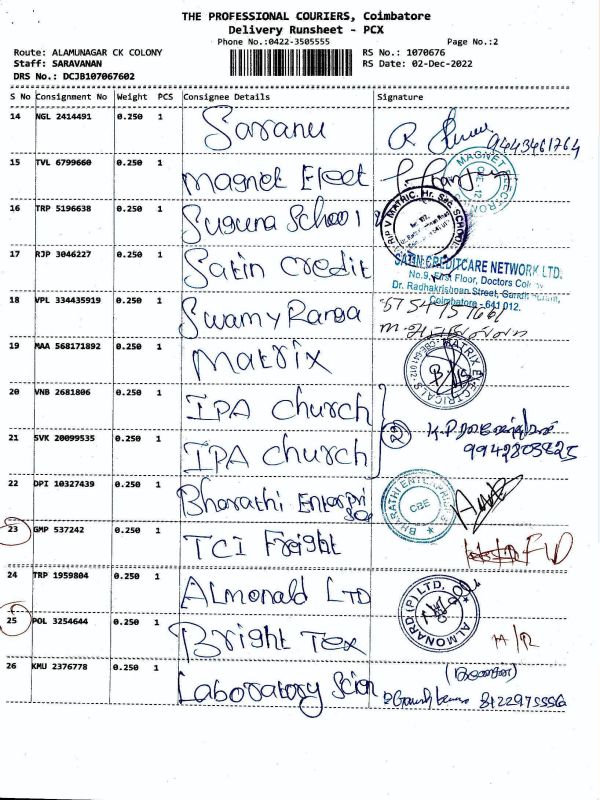 THE PROFESSIONAL COURIERS, Coimbatore
Delivery Runsheet - PCX
Phone No.:0422-3505555 Page No.:2
Route: ALAMUNAGAR CK COLONY RS No.: 1070676
Staff: SARAVANAN RS Date: 02-Dec-2022
DRS No.: DCJB107067602
S No Consignment No Weight PCS Consignee Details Signature
14 NGL 2414491 0.250 1 Saranu 9443461764
15 TVL 6799660 0.250 1 Magnet Elect
MAGNET ELECTRON
16 TRP 5196638 0.250 1 Suguna School
V MATRIC. Hr. Sec SCHOOL
17 RJP 3046227 0.250 1 Satin Credit
SATIN CREDITCARE NETWORK LTD.
No.9, First Floor, Doctors Colony
Dr. Radhakrishnan Street,
Coimbatore - 641 012.
18 VPL 334435919 0.250 1 Swamy Ranga
19 MAA 568171892 0.250 1 Matrix
MATRIX ELECTRICALS
CBE-641 012
20 VNB 2681806 0.250 1 IPA church
21 SVK 20099535 0.250 1 IPA church
2
9942803825
22 DPI 10327439 0.250 1 Bharathi Enterpri
BHARATHI ENTERPRISES
CBE
23 GMP 537242 0.250 1 TCI Freight
24 TRP 1959804 0.250 1 ALmonald LTD
ALMONARD (P) LTD,
25 POL 3254644 0.250 1 Bright Tex
26 KMU 2376778 0.250 1 Laboratory Scien 8422975556